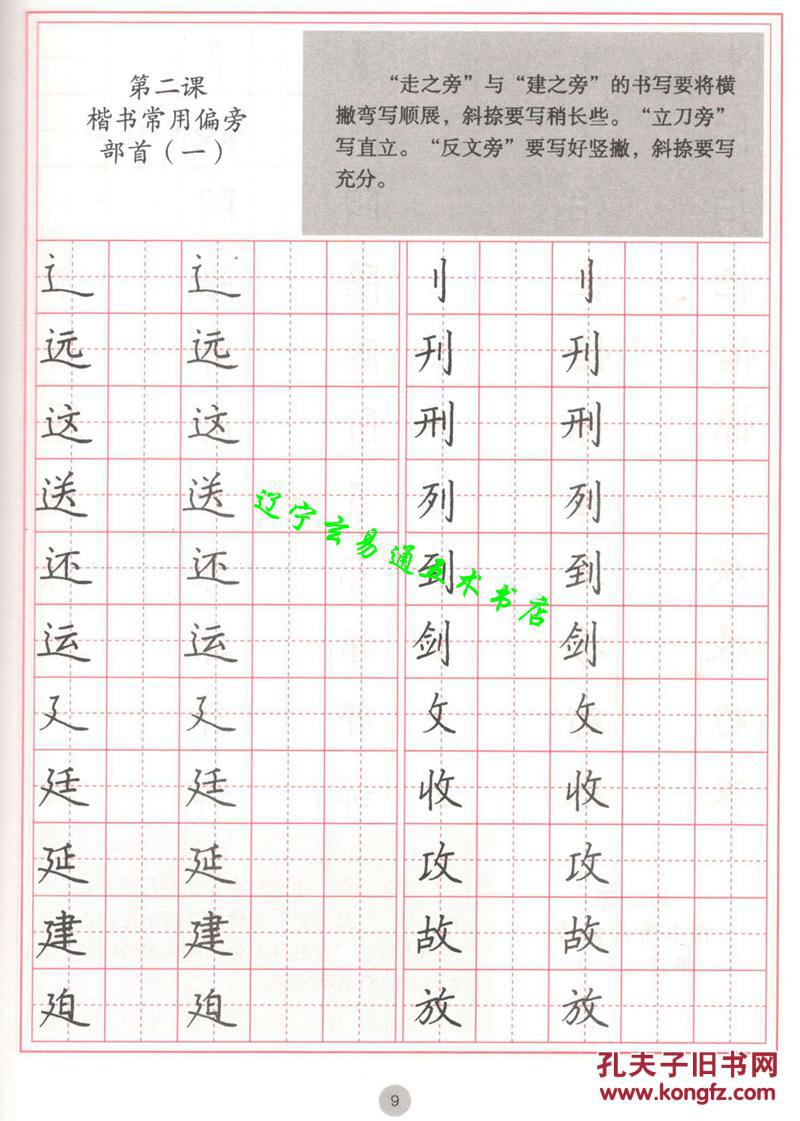 第二课
楷书常用偏旁
部首（一）
“走之旁”与“建之旁”的书写要将横
撇弯写顺展，斜捺要写稍长些。“立刀旁”
写直立。“反文旁”要写好竖撇，斜捺要写
充分。
辶 辶 刂 刂
远 远 刊 刊
这 这 刑 刑
送 送 列 列
还 还 到 到
运 运 剑 剑
廴 廴 攵 攵
廷 廷 收 收
延 延 攻 攻
建 建 故 故
廹 廹 放 放
辽宁玄易通 术书店
孔夫子旧书网
www.kongfz.com
9